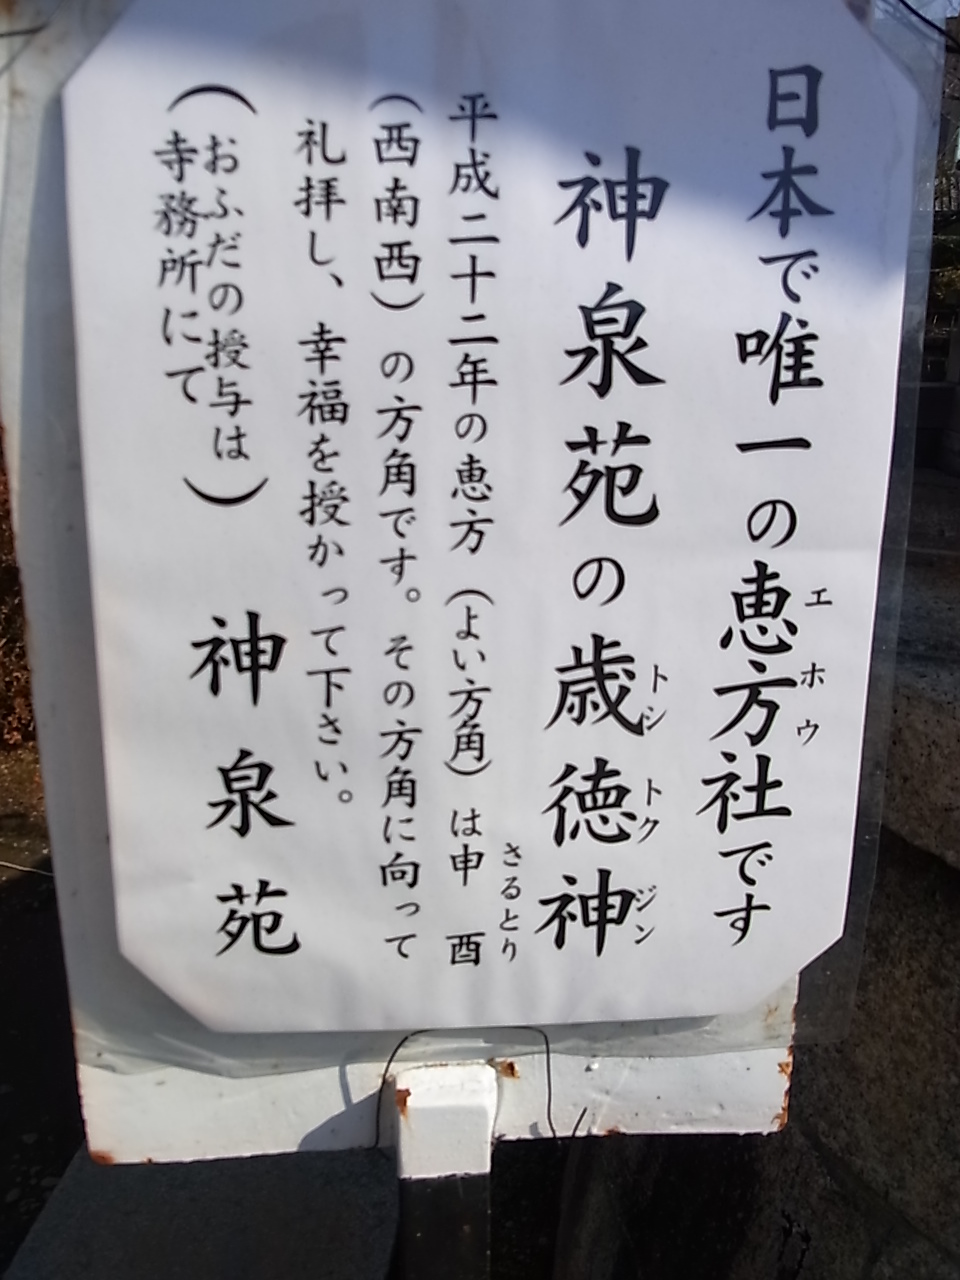 日本で唯一の恵方社です
エホウ
神泉苑の歳徳神
トシトクジン
平成二十二年の恵方（よい方角）は申　酉
さるとり
（西南西）の方角です。その方角に向って
礼拝し、幸福を授かって下さい。
（おふだの授与は
寺務所にて）
神泉苑